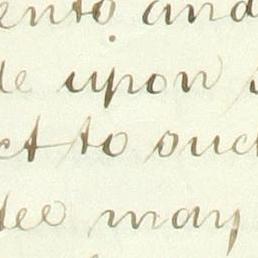 ents and
de upon s
ct to suc
tee may